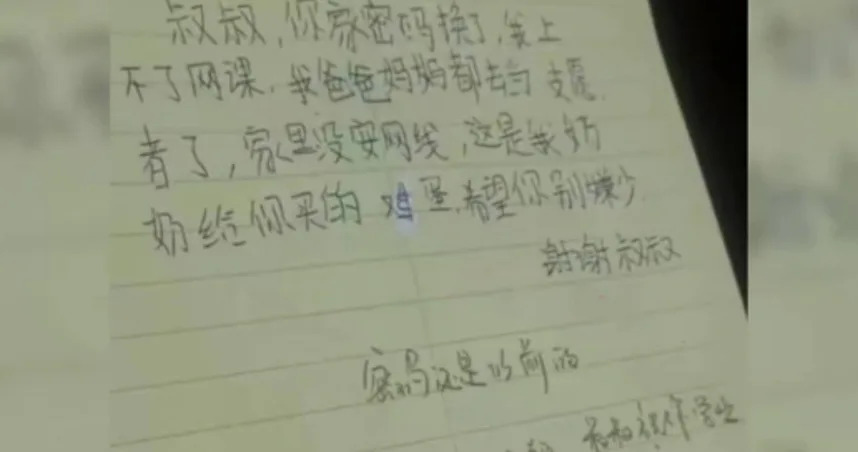 叔叔,你家密码换了,我上
不了网课.我爸爸妈妈都去当志愿
者了,家里没安网线,这是我奶
奶给你买的鸡蛋.希望你别嫌少.
谢谢叔叔
密码还是以前的
叔叔祝你学业